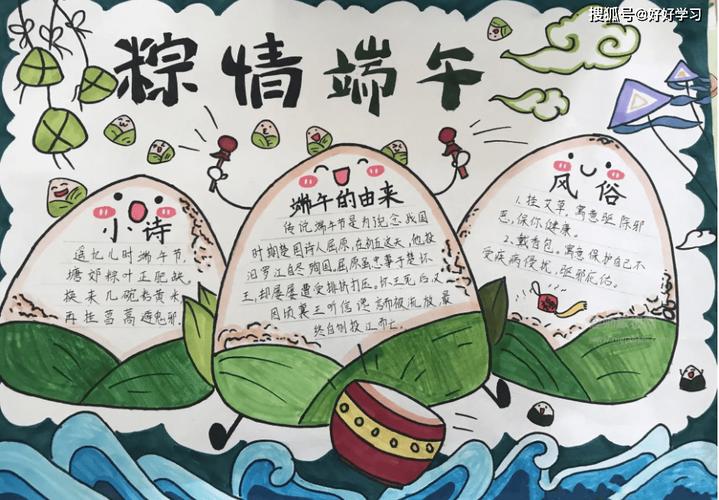 搜狐号@好好学习
粽情端午
小诗
遥忆儿时端午节,
塘郊粽叶正肥
换来几碗粘黄米,
再挂菖蒿避鬼邪.
端午的由来
传说端午节是为纪念战国
时期楚国诗人屈原,在初五这天,他投
汨罗江自尽殉国,屈原虽忠事于楚怀
王,却屡屡遭受排挤打压,怀王死后,又
因顷襄王听信谗言而被流放,最
终自刎投江而亡.
风俗
1.挂艾草,寓意驱除邪
恶,保你健康.
2.戴香包,寓意保护自己不
受疾病侵扰,驱邪庇佑.